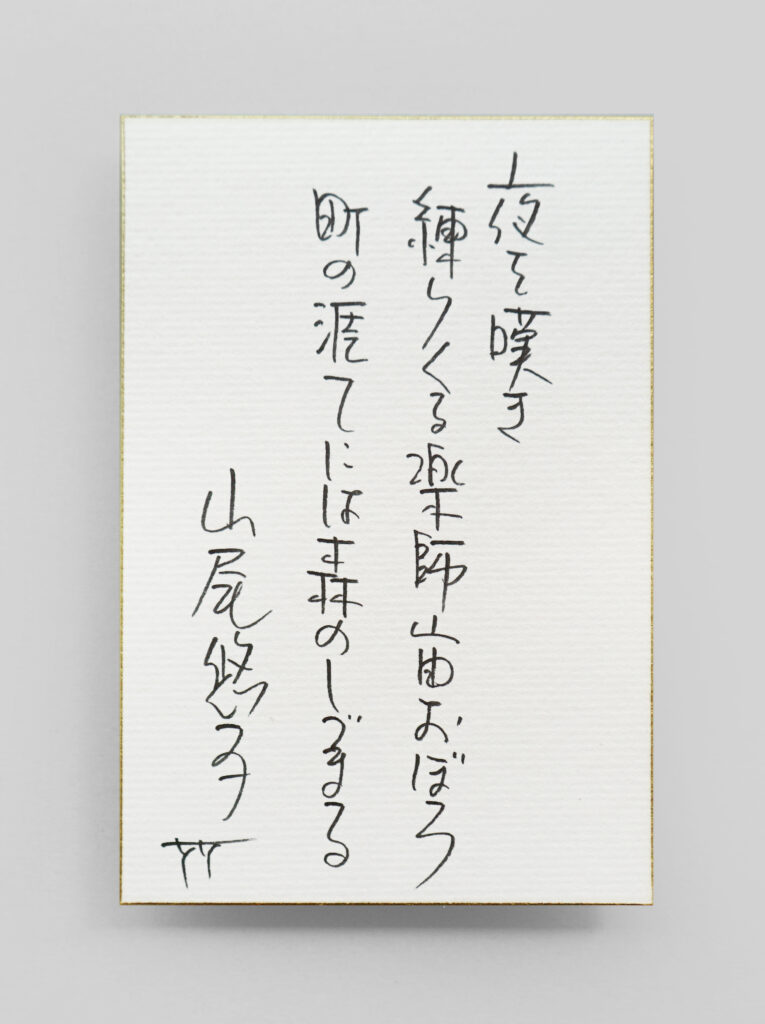 夜を嘆き
練りくる楽師宙おぼろ
町の涯てには森のしづまる
山尾悠子